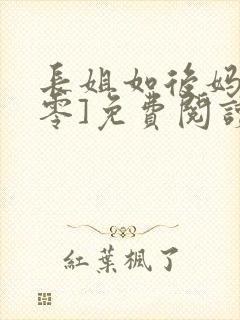 長姐如後媽
零]免費閱讀
紅葉楓了